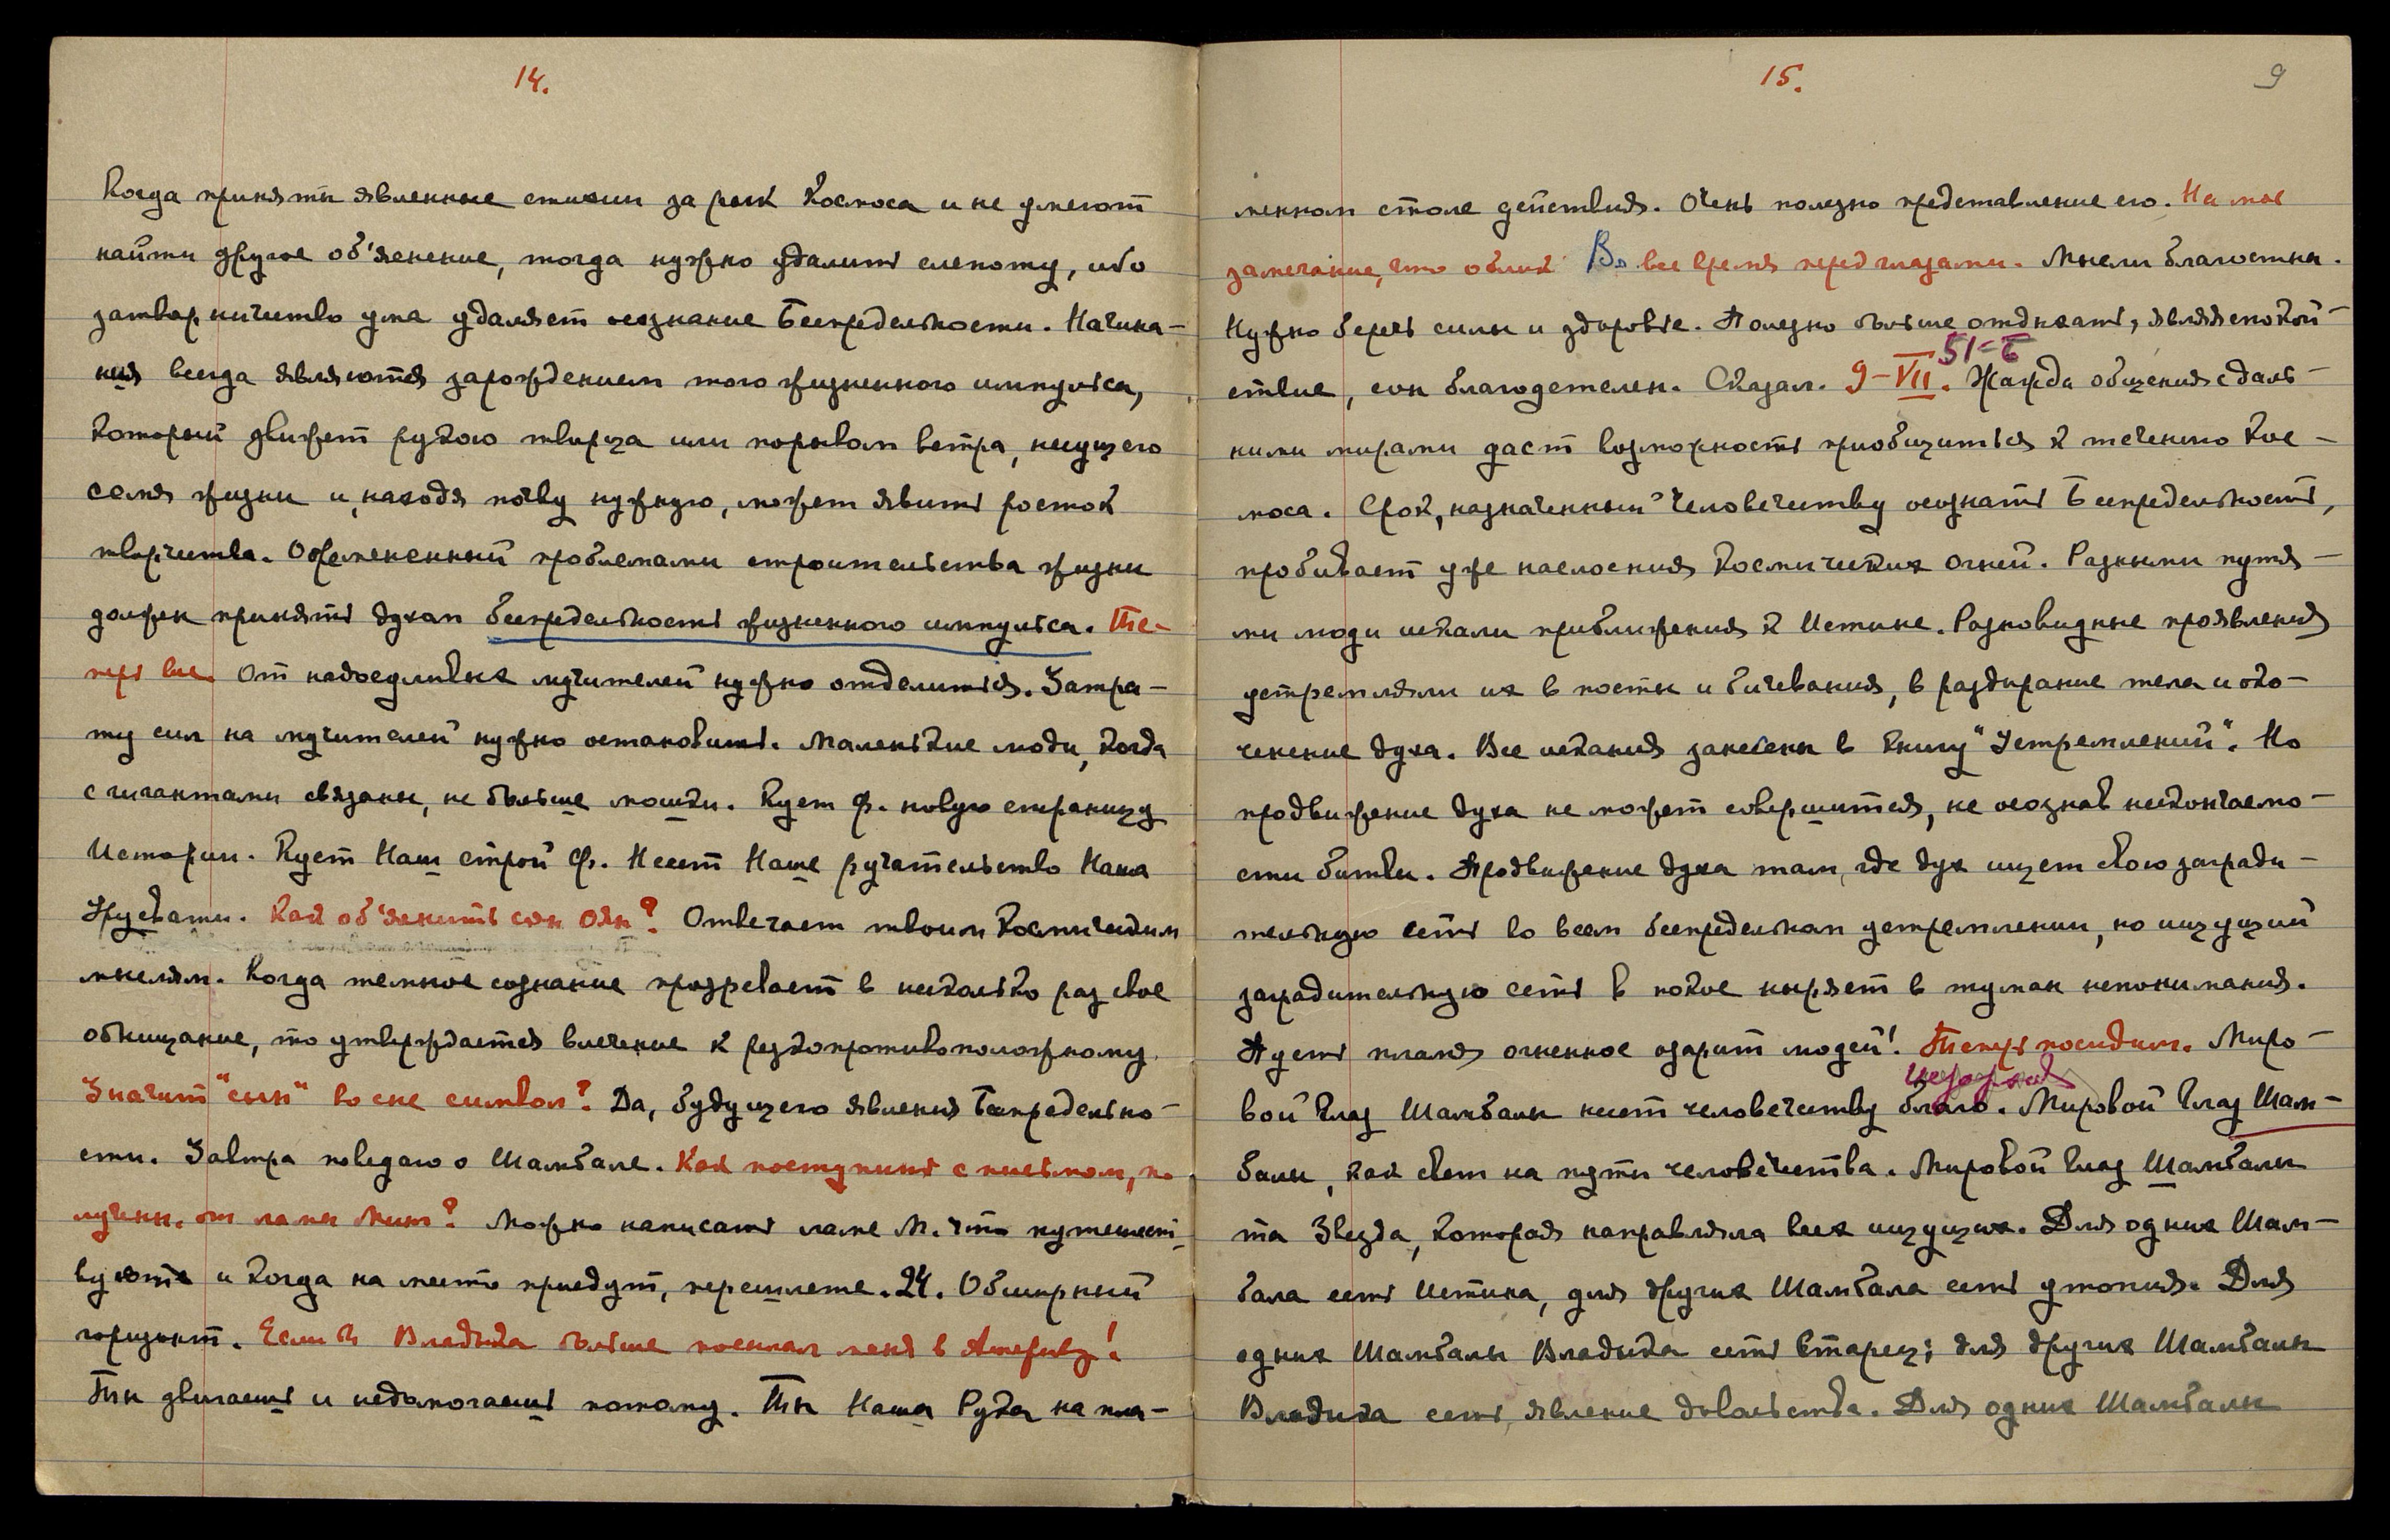 14.
Когда приняты явленные стихии за рык Космоса и не умеют
найти другое об'яснение, тогда нужно удалить слепоту, ибо
затворничество ума удаляет осознание Беспредельности. Начина-
ния всегда являются зарождением того жизненного импульса,
который движет рукою творца или порывом ветра, несущего
семя жизни и, находя почву нужную, может явить росток
творчества. Обремененный проблемами строительства жизни
должен принять духом беспредельность жизненного импульса. Те-
перь все. От надоедливых мучителей нужно отделиться. Затра-
ту сил на мучителей нужно остановить. Маленькие люди, когда
с гигантами связаны, не больше мошки. Кует Ф. новую страницу
Истории. Кует Наш строй Ф. Несет Наше ручательство Наша
Урусвати. Как об'яснить сон Оян? Отвечает твоим Космическим
мыслям. Когда темное сознание прозревает в несколько раз свое
обнищание, то утверждается влечение к резкопротивоположному.
Значит "сын" во сне символ? Да, будущего явления Беспредельно-
сти. Завтра поведаю о Шамбале. Как поступить с письмом, по-
лученн. от ламы Минг? Можно написать ламе М. что путешест-
вуюте и когда на место приедут, перешлете. 24. Обширный
горизонт. Если б Владыка больше посылал меня в Америку!
Ты двигаешь и недомогаешь потому. Ты Наша Рука на пла-
15.
9
менном столе действия. Очень полезно представление его. На мое
замечание, что облик Вл. все время перед глазами. Мысли благостны.
Нужно беречь силы и здоровье. Полезно больше отдыхать, являя спокой-
51-Б
ствие, сон благодетелен. Сказал. 9-VII. Жажда общения с даль-
ними мирами даст возможность приобщиться к течению Кос-
моса. Срок, назначенный человечеству осознать Беспредельность,
пробивает уже наслоения космических огней. Разными путя-
ми люди искали приближения к Истине. Разновидные проявления
устремляли их в посты и бичевания, в раздирание тела и око-
ченение духа. Все искания занесены в книгу "Устремлений". Но
продвижение духа не может совершиться, не осознав нескончаемо-
сти битвы. Продвижение духа там, где дух ищет свою загради-
тельную сеть во всем беспредельном устремлении, но ищущий
заградительную сеть в покое ныряет в туман непонимания.
Пусть пламя огненное озарит людей! Теперь посидим. Миро-
вой Глаз Шамбалы несет человечеству благо. Мировой Глаз Шам-
балы, как свет на пути человечества. Мировой Глаз Шамбалы
та Звезда, которая направляла всех ищущих. Для одних Шам-
бала есть Истина, для других Шамбала есть утопия. Для
одних Шамбалы Владыка есть старец; для других Шамбалы
Владыка есть явление довольства. Для одних Шамбалы